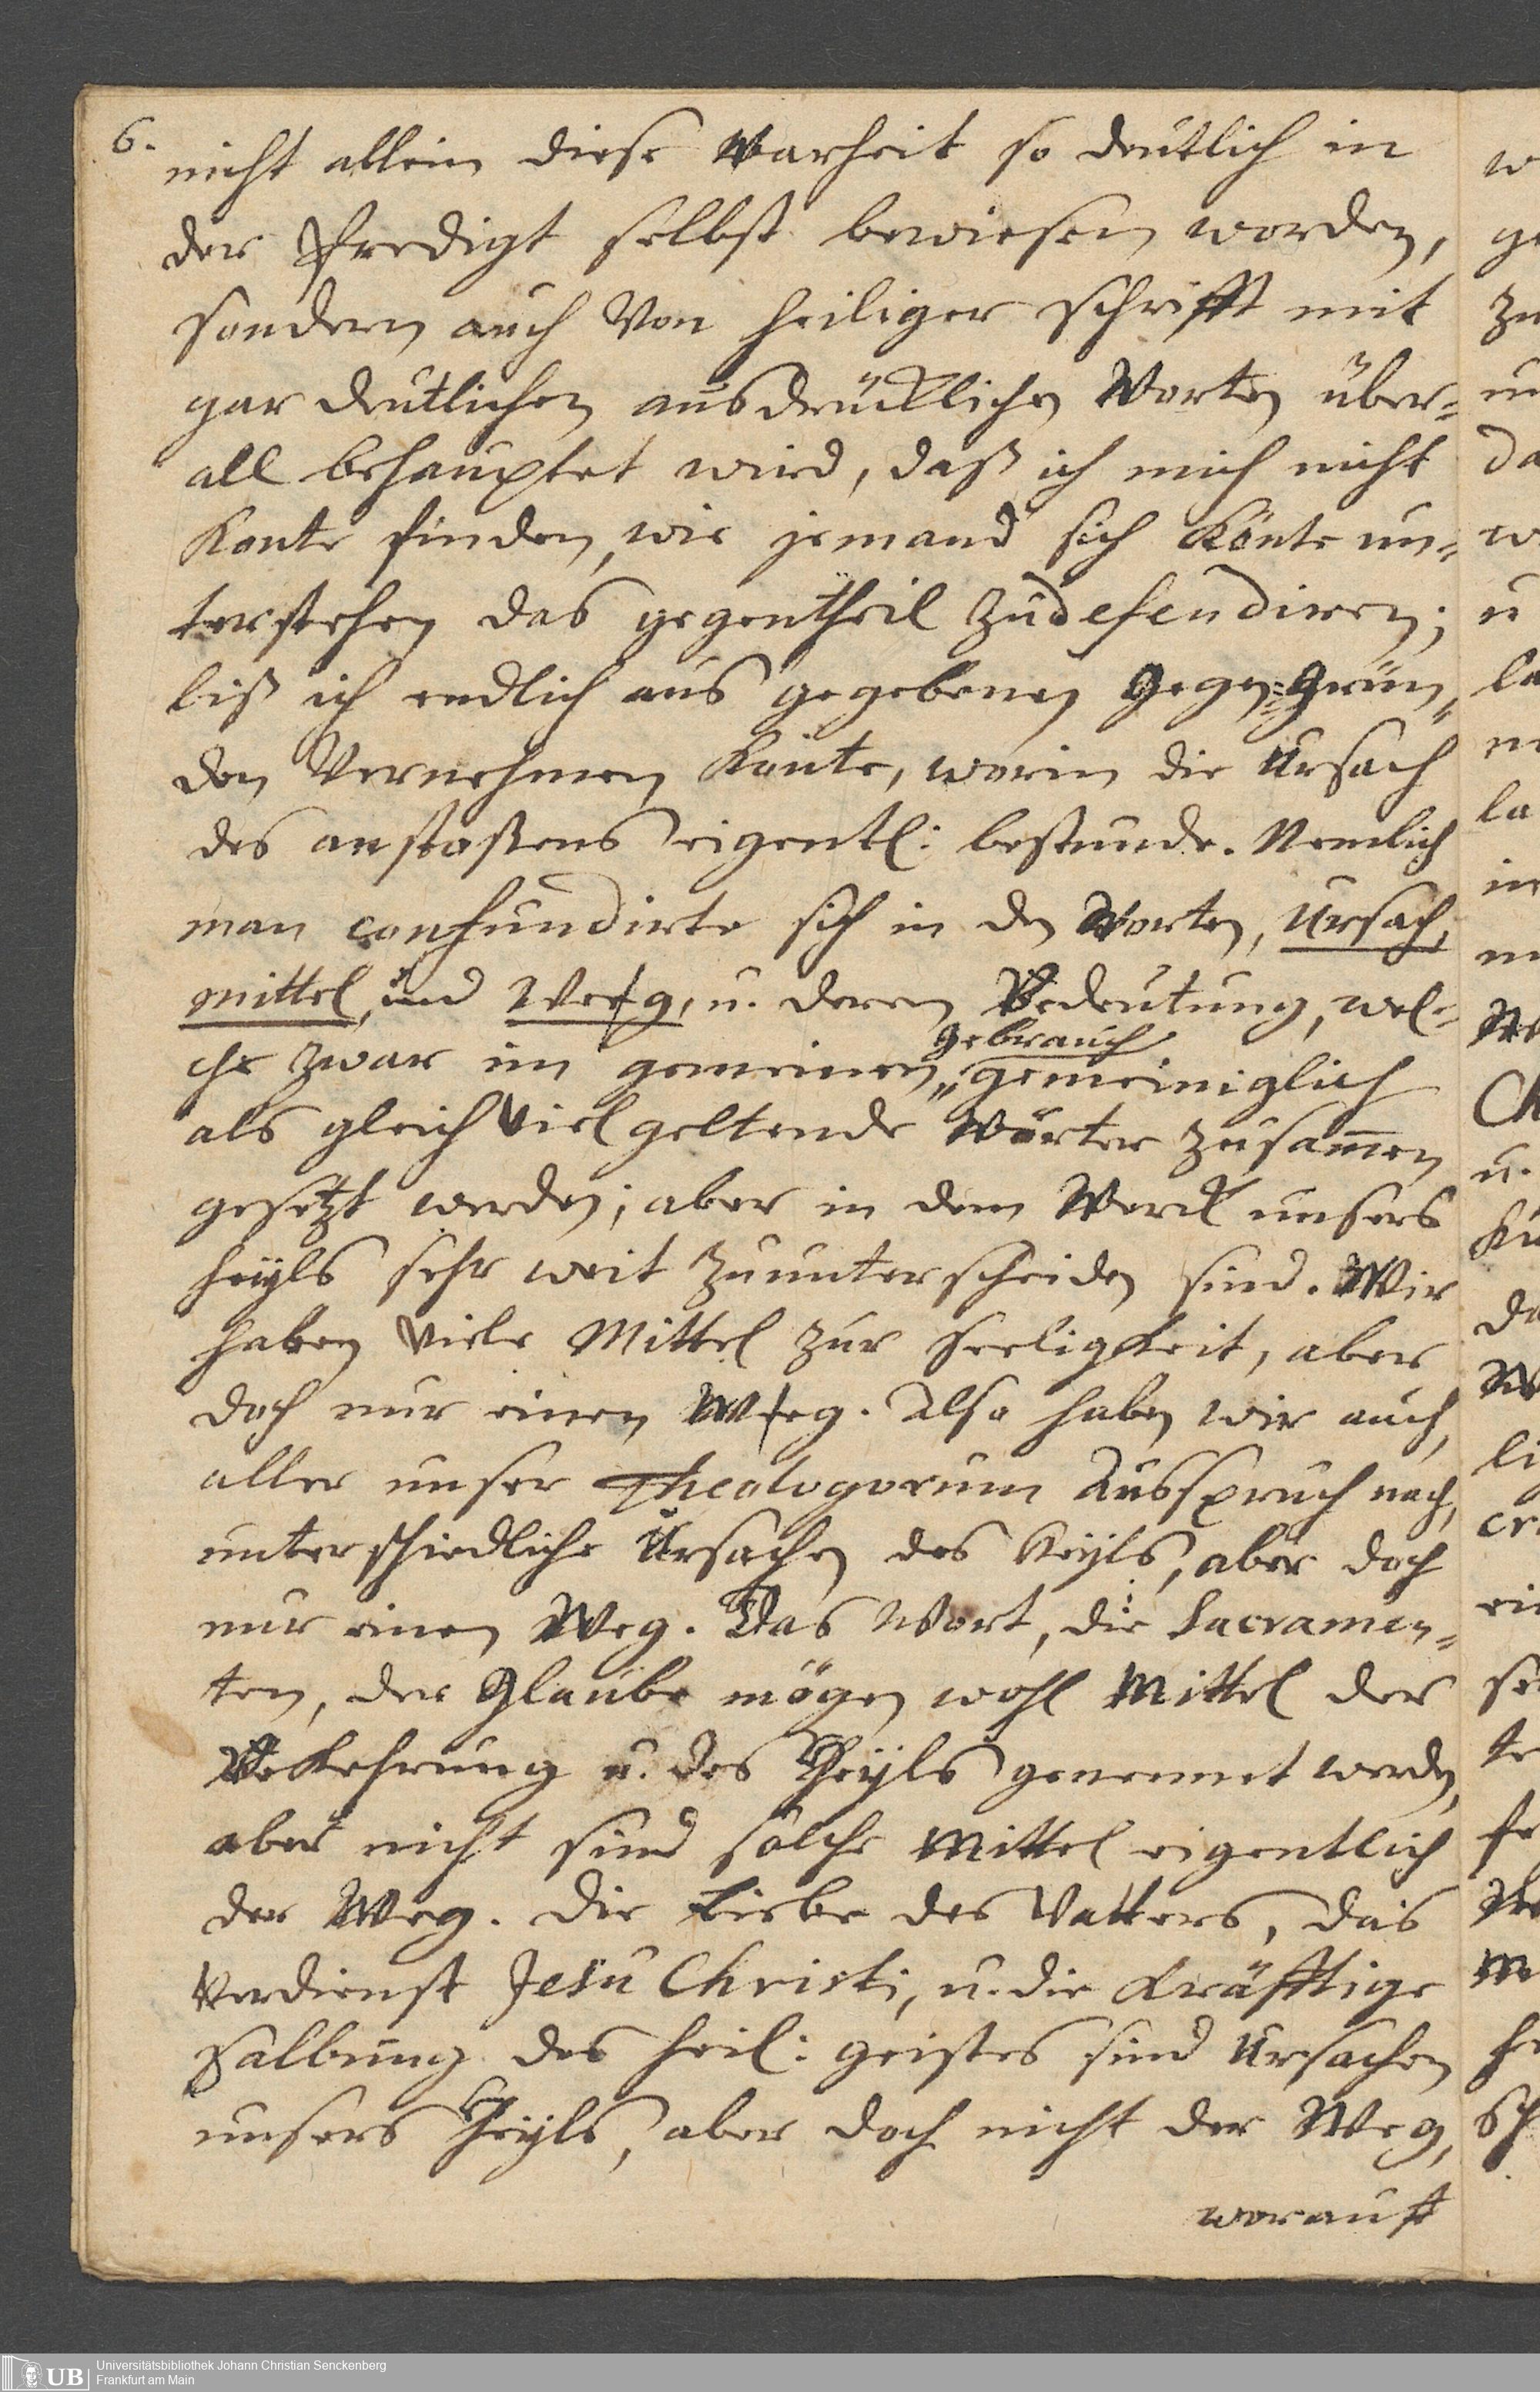 6.
nicht allein diese Warheit so deutlich in
der Predigt selbst bewiesen worden,
sondern auch Von heiliger Schrifft mit
gar deutlichen ausdrücklichen Worten über=
all behauptet wird, daß ich mich nicht
konte finden, wie jemand sich könte un=
terstehen das gegentheil zu defendiren;
biß ich endlich aus gegebenen Gegen=Grün=
den Vernehmen könte, worin die Ursach
des anstoßens eigentl: bestunde. Nemlich
man confundirte sich in den Worten, Ursach,
mittel, und Weg, u. deren Bedeutung, wel=
che zwar im gemeinen Gebrauch gemeiniglich
als gleich Viel geltende Wörter zusam̄en
gesetzt werden; aber in dem Werck unsers
heyls sehr weit zu unterscheiden sind. Wir
haben Viele Mittel zur Seeligkeit, aber
doch nur einen Weg. Also haben wir auch,
aller unser Theologorum Ausspruch nach,
unterschiedliche Ursachen des Heyls, aber doch
nur einen Weg. Das Wort, die Sacramen=
ten, der Glaube mögen wohl Mittel der
Bekehrung u. des Heyls genennet werden,
aber nicht sind solche Mittel eigentlich
der Weg. Die Liebe des Vatters, das
Verdienst Jesu Christi, u. die kräfftige
Salbung des heil: geistes sind Ursachen
unsers Heyls, aber doch nicht der Weg,
worauff
UB
Universitätsbibliothek Johann Christian Senckenberg
Frankfurt am Main